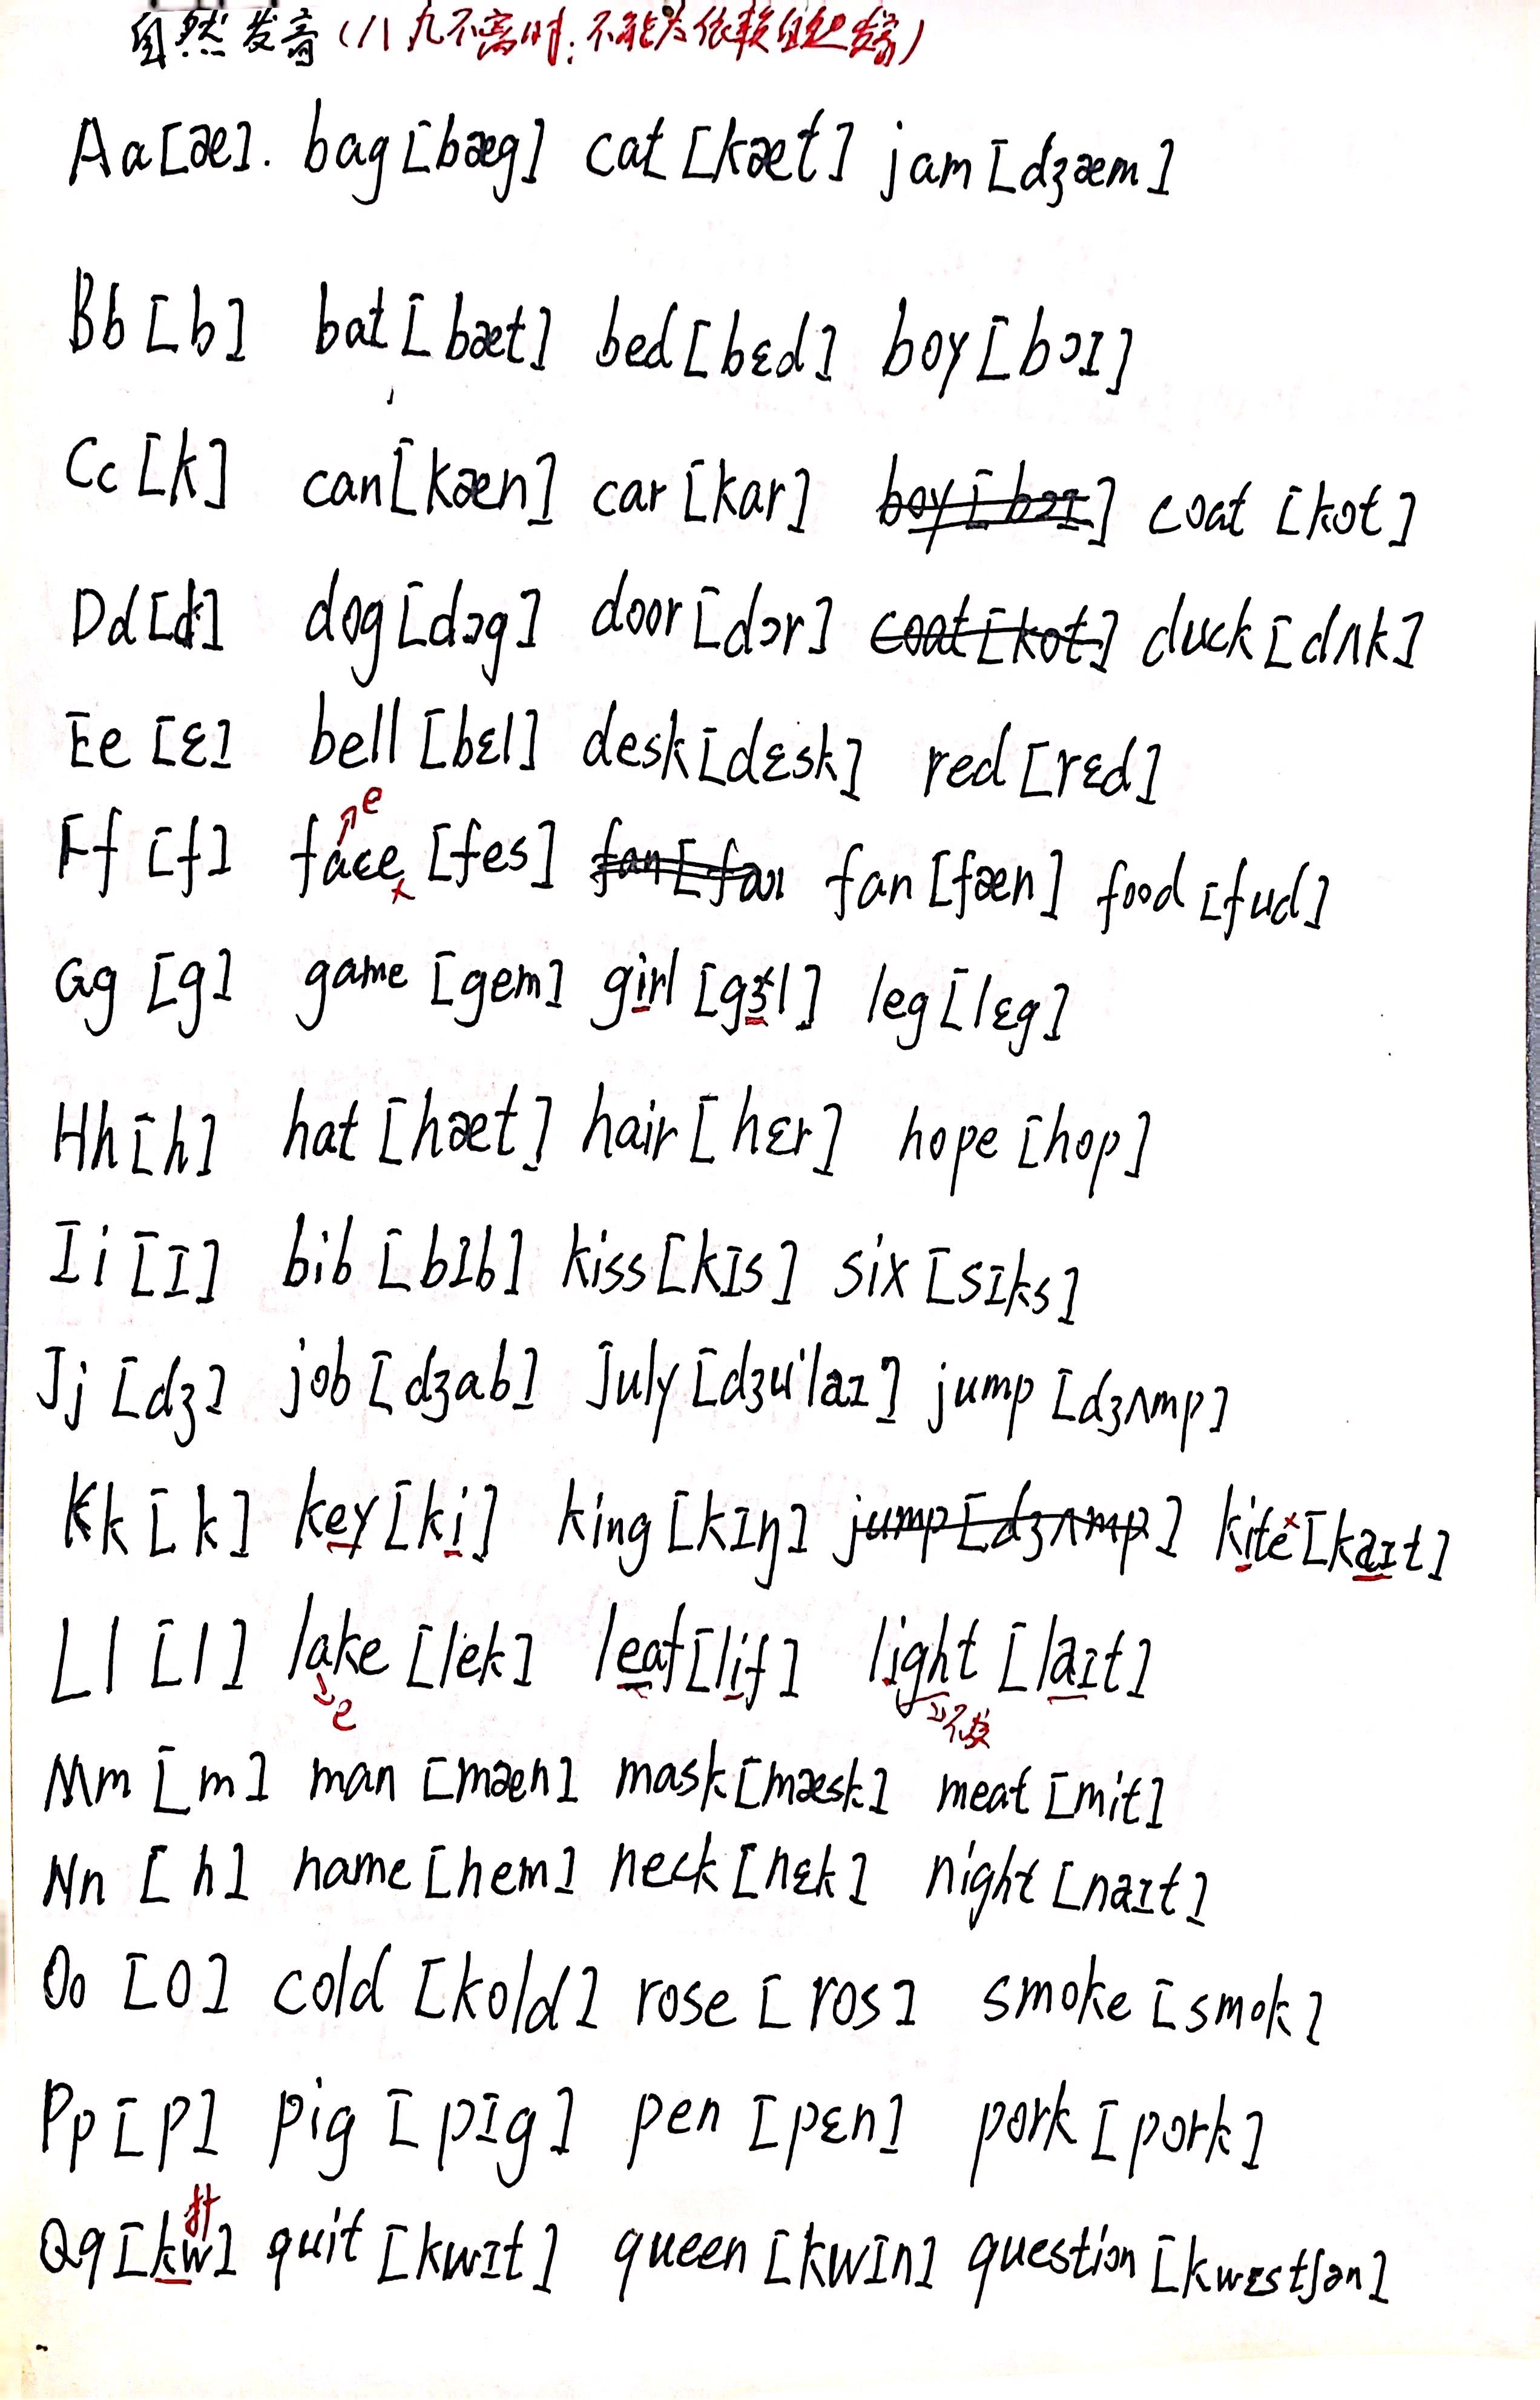 自然发音(八九不离十,不能太依赖自然发音)
Aa[æ]. bag[bæg] cat[kæt] jam[dʒæm]
Bb[b] bat[bæt] bed[bɛd] boy[bɔɪ]
Cc[k] can[kæn] car[kar] boy[bɔɪ] coat[kot]
Dd[d] dog[dɔg] door[dɔr] coat[kot] duck[dʌk]
Ee[ɛ] bell[bɛl] desk[dɛsk] red[rɛd]
e
Ff[f] face[fes] fan[fan fan[fæn] food[fud]
x
Gg[g] game[gem] girl[gɝl] leg[lɛg]
Hh[h] hat[hæt] hair[hɛr] hope[hop]
Ii[ɪ] bib[bɪb] kiss[kɪs] six[sɪks]
Jj[dʒ] job[dʒab] July[dʒu'laɪ] jump[dʒʌmp]
Kk[k] key[ki] king[kɪŋ] jump[dʒʌmp] kite[kaɪt]
Ll[l] lake[lek] leaf[lif] light[laɪt]
e 不发
Mm[m] man[mæn] mask[mæsk] meat[mit]
Nn[n] name[nem] neck[nɛk] night[naɪt]
Oo[o] cold[kold] rose[ros] smoke[smok]
Pp[p] pig[pɪg] pen[pɛn] pork[pɔrk]
Qq[kw] quit[kwɪt] queen[kwɪn] question[kwɛstʃən]